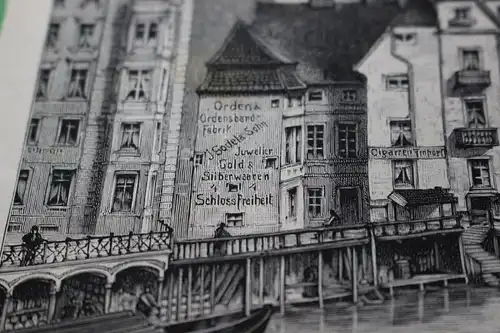 Orden &
Ordensband-
Fabrik
J. Godet & Sohn
Juwelier
Gold &
Silberwaaren
Schloss Freiheit
Cigarren Import